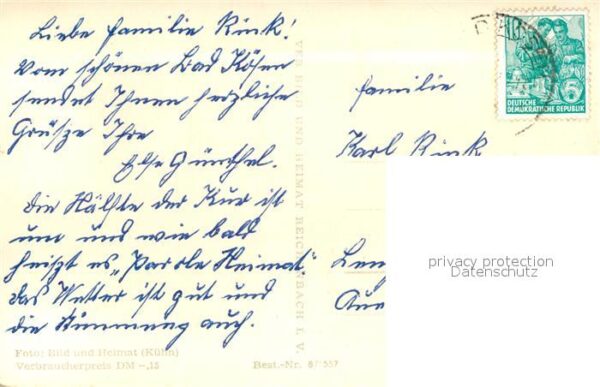 Liebe Familie Rink!
Vom schönen Bad Kösen
sendet Ihnen herzliche
Grüsze Ihre
Else Günthel.
Die Hälfte der Kur ist
um und wie bald
heiszt es „Parole Heimat".
Das Wetter ist gut und
die Stimmung auch.
Foto: Bild und Heimat (Kühn)
Verbraucherpreis DM -,15
Best.-Nr. 6/1557
VEB BILD UND HEIMAT REICHENBACH I. V.
DEUTSCHE
DEMOKRATISCHE REPUBLIK
5
Familie
Karl Rink
privacy protection
Datenschutz